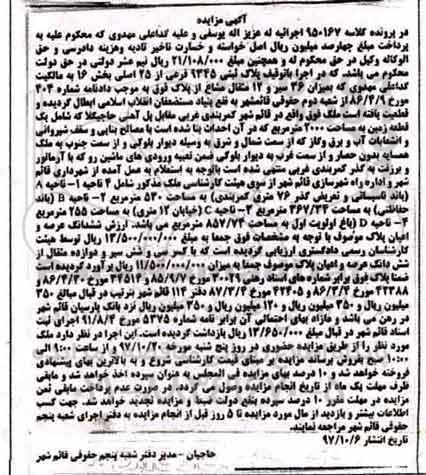 آگهی مزایده
در پرونده کلاسه ۹۵۰۱۶۷ اجرائیه له عزیز اله یوسفی و علیه کداعلی مهدوی که محکوم علیه به
پرداخت مبلغ چهارصد میلیون ریال اصل خواسته و خسارت تاخیر تادیه وهزینه دادرسی و حق
الوکاله وکیل در حق محکوم له و همچنین مبلغ ۲۱/۱۰۸/۰۰۰ ریال نیم عشر دولتی در حق دولت
محکوم می باشد، که در اجرا باتوقیف پلاک ثبتی ۹۳۴۵ فرعی از ۲۵ اصلی بخش ۱۶ به مالکیت
کداعلی مهدوی که بمیزان ۴۶ سیر و ۱۲ مثقال مشاع از پلاک فوق به موجب دادنامه شماره ۴۰۴
مورخ ۸۶/۴/۹ از شعبه دوم حقوقی قائمشهر به نفع بنیاد مستضعفان انقلاب اسلامی ابطال گردیده و
قطعیت یافته است ملک فوق واقع در قائم شهر کمربندی غربی مقابل پل آهنی حاجیکلا که شامل یک
قطعه زمین به مساحت ۲۰۰۰ مترمربع که در آن احداث بنا شده است با مصالح بنایی و سقف شیروانی
و انشعابات آب و برق وگاز که از سمت شمال و شرق به وسیله دیوار بلوکی و از سمت جنوب به ملک
همسایه بدون حصار و از سمت غرب به دیوار بلوکی ضمن تعبیه ورودی های ماشین رو که با آرماتور
و برزنت به گذر کمربندی غربی منتهی شده است باتوجه به استعلام به عمل آمده از شهرداری قائم
شهر و اداره راه شهرسازی قائم شهر از سوی هیئت کارشناسی ملک مذکور شامل ۴ ناحیه ۱- ناحیه A
(باند تاسیساتی و تعریض گذر ۷۶ متری کمربندی) به مساحت ۵۳۰ مترمربع ۲- ناحیه B (باند
حفاظتی) به مساحت ۳۶۷/۳۴ مترمربع ۳- ناحیه C (خیابان ۱۲ متری) به مساحت ۲۵۵ مترمربع
۴- ناحیه D (باغ اولویت اول به مساحت ۸۵۷/۷۳ مترمربع می باشد. ارزش ششدانگ عرصه و
اعیان پلاک موصوف با توجه به مشخصات فوق جمعا به مبلغ ۱۳/۵۰۰/۰۰۰/۰۰۰ ریال توسط هیئت
کارشناسان رسمی دادگستری ارزیابی گردیده است که با کسر سی و شش سیر و دوازده مثقال از
شش دانگ عرصه و اعیان پلاک موصوف جمعا به میزان ۱۱/۵۰۰/۰۰۰/۰۰۰ ریال برآورد گردیده است
ضمنا پلاک فوق برابر شماره های اسناد رهنی ۳۰۰۲۹ مورخ ۸۵/۹/۷ و ۳۴۵۱۴ مورخ ۸۶/۴/۳۰ و
۴۳۳۸۸ مورخ ۸۶/۳/۴ و ۴۲۴۰۵ مورخ ۸۷/۳/۴ دفتر ۱۱۴ قائم شهر بترتیب در قبال مبالغ ۳۵۰
میلیون ریال و ۳۵۰ میلیون ریال و ۱۲۰ میلیون ریال و ۳۵۰ میلیون ریال نزد بانک پارسیان قائم شهر
در رهن می باشد و مازاد بهای احتمالی آن برابر نامه شماره ۵۳۷۵ مورخ ۹۱/۸/۴ اجرای ثبت
اسناد قائم شهر در قبال مبلغ ۱۳/۶۵۰/۰۰۰ ریال بازداشت گردیده است. این اجرا در نظر دارد ملک
مورد نظر را از طریق مزایده حضوری در روز پنج شنبه مورخه ۹۷/۱۰/۲۰ و از ساعت ۹:۰۰ الی
۱۰:۰۰ صبح بفروش برساند مزایده بر مبنای قیمت کارشناسی شروع و به بالاترین بهای پیشنهادی
فروخته خواهد شد و ۱۰ درصد بهای مزایده فی المجلس به عنوان سپرده اخذ خواهد شد و مابقی
ظرف مهلت یک ماه از تاریخ انجام مزایده وصول می گردد، در صورت عدم پرداخت مابقی ثمن
مزایده در مهلت مقرر ۱۰ درصد سپرده بنفع دولت ضبط و مزایده تجدید خواهد شد. جهت کسب
اطلاعات بیشتر و بازدید از مال مورد مزایده تا ۵ روز قبل از انجام مزایده به دفتر اجرای شعبه پنجم
حقوقی قائم شهر مراجعه نمایند.
تاریخ انتشار ۹۷/۱۰/۶
حاجیان - مدیر دفتر شعبه پنجم حقوقی قائم شهر